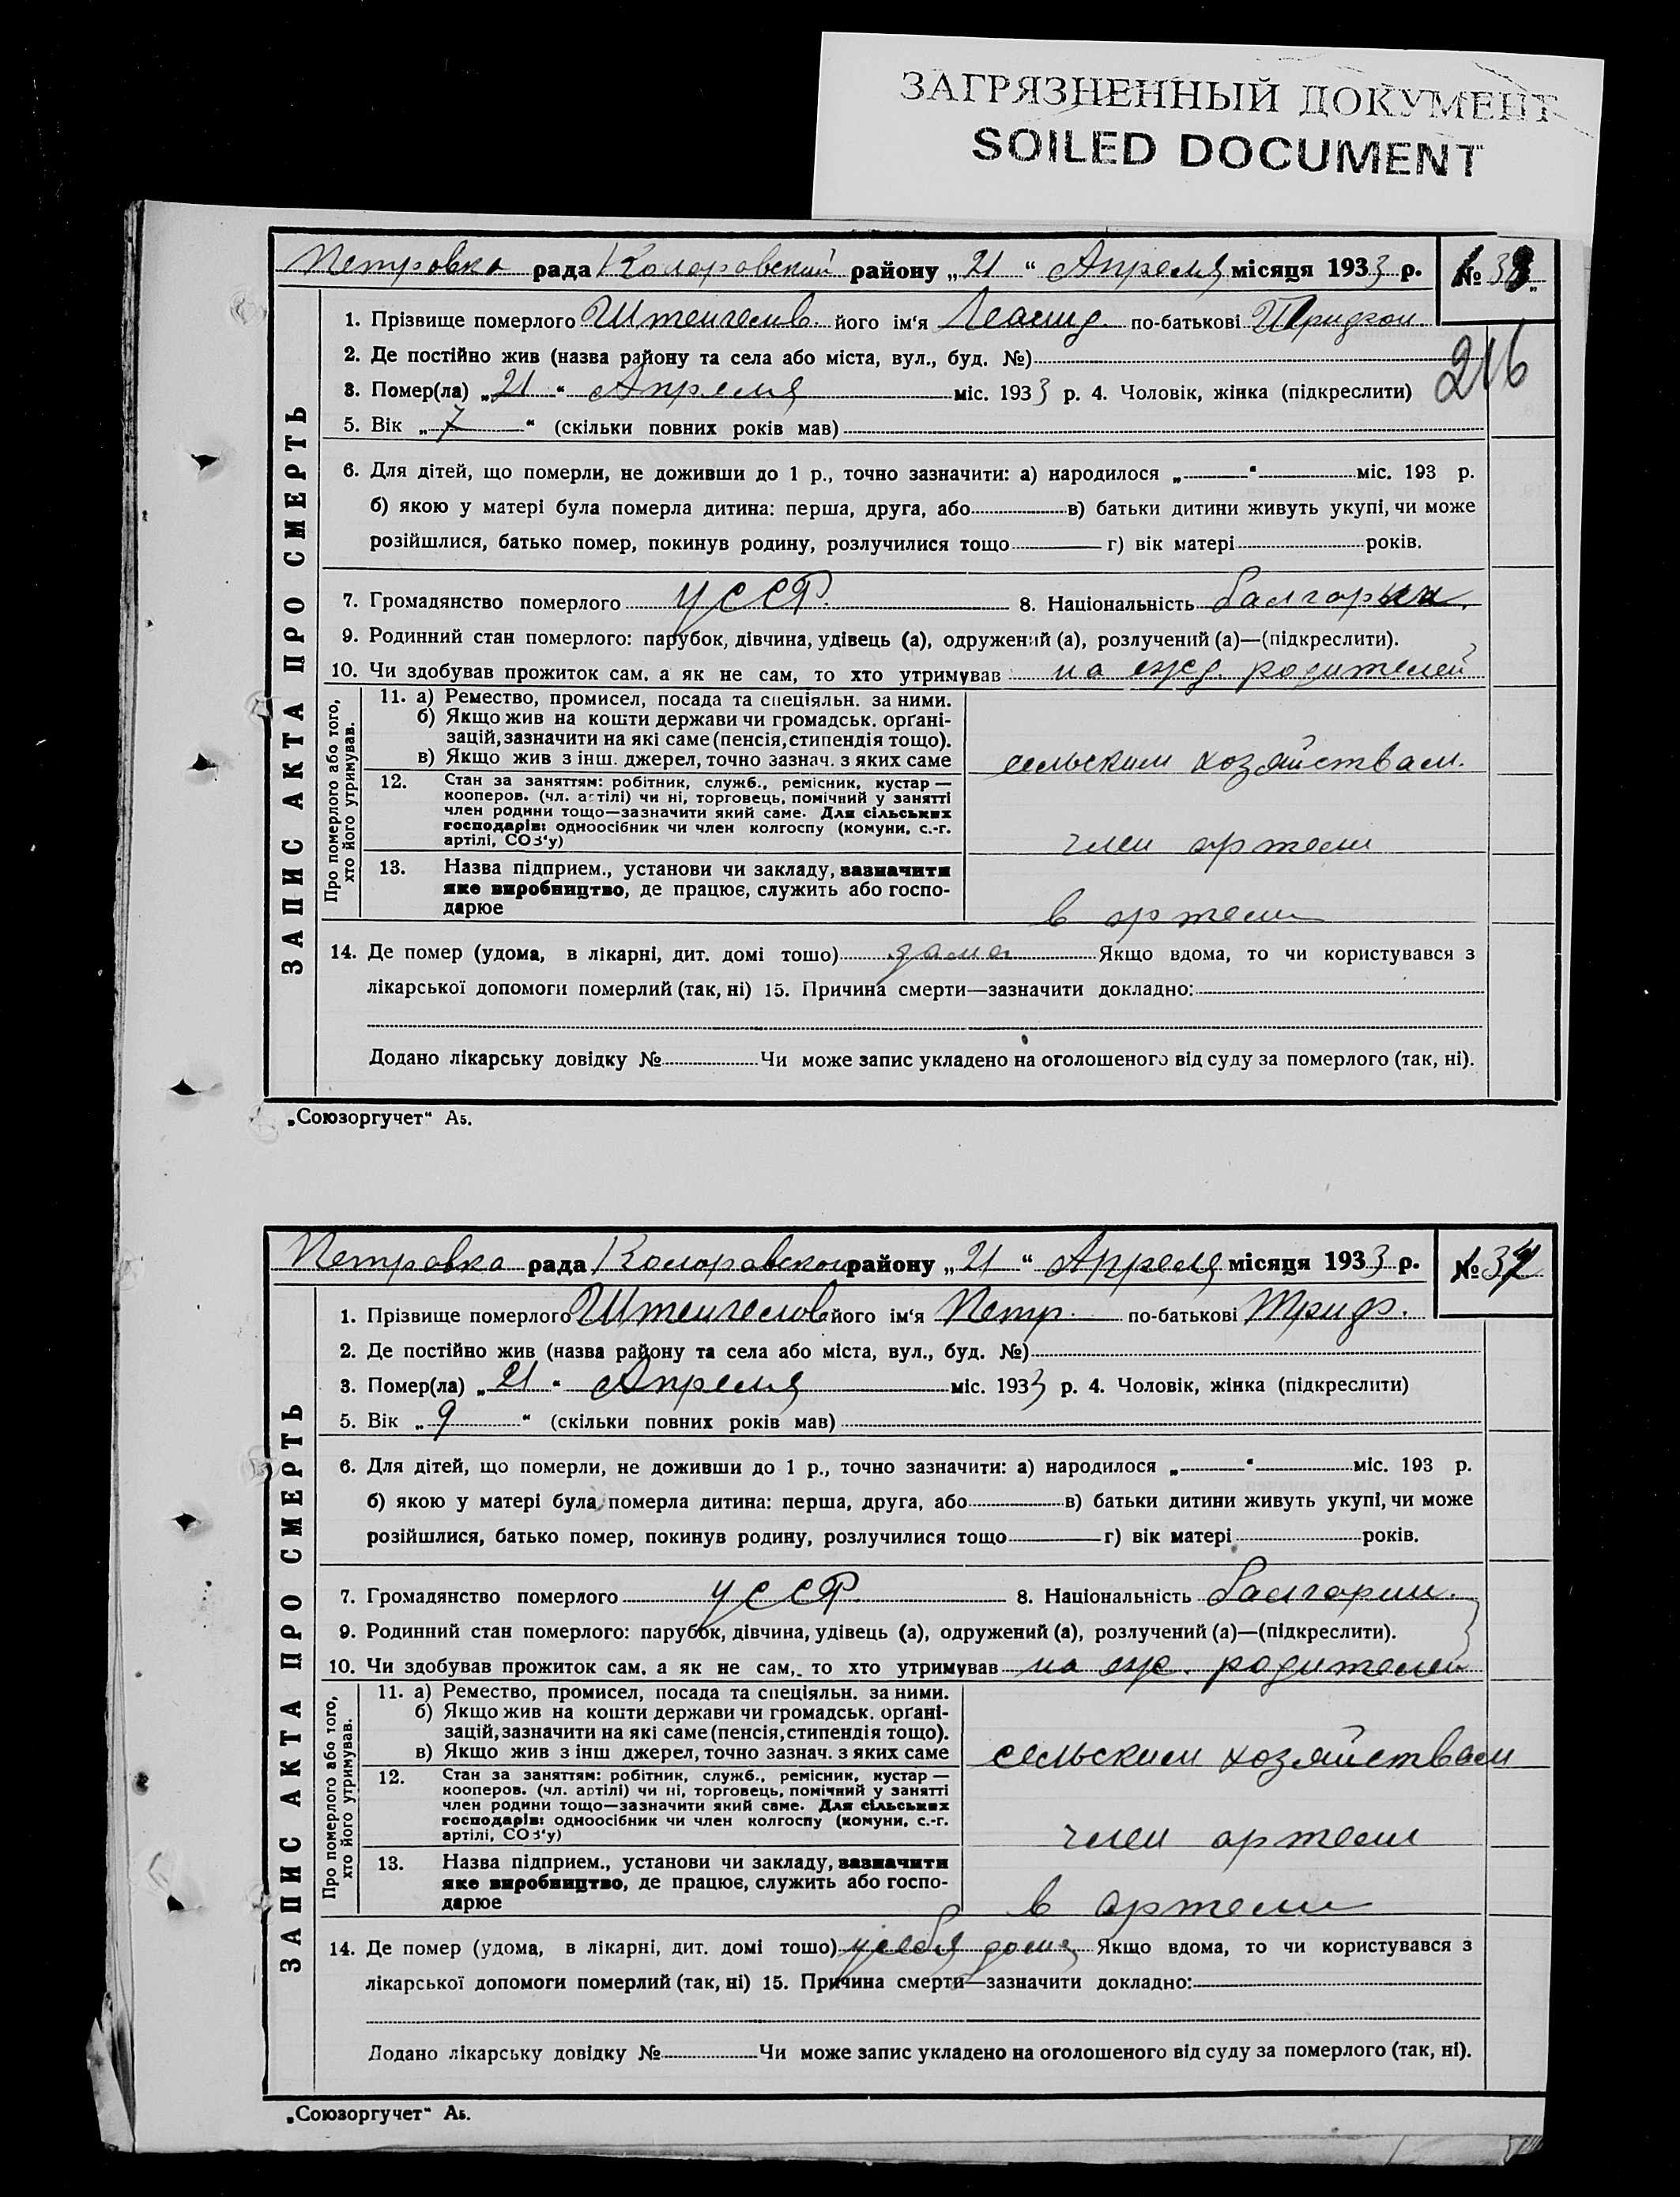 ЗАГРЯЗНЕННЫЙ ДОКУМЕНТ
SOILED DOCUMENT
Петровка рада Коларовский району „21“ Апреля місяця 1933 р. № 33
216
ЗАПИС АКТА ПРО СМЕРТЬ
1. Прізвище померлого його ім'я Леонид по-батькові
2. Де постійно жив (назва району та села або міста, вул., буд. №)
3. Помер(ла) „21“ Апреля міс. 1933 р. 4. Чоловік, жінка (підкреслити)
5. Вік „7“ (скільки повних років мав)
6. Для дітей, що померли, не доживши до 1 р., точно зазначити: а) народилося „ “ міс. 193 р.
б) якою у матері була померла дитина: перша, друга, або в) батьки дитини живуть укупі, чи може
розійшлися, батько помер, покинув родину, розлучилися тощо г) вік матері років.
7. Громадянство померлого УССР. 8. Національність
9. Родинний стан померлого: парубок, дівчина, удівець (а), одружений (а), розлучений (а)—(підкреслити).
10. Чи здобував прожиток сам, а як не сам, то хто утримував на ижд. родителей
Про померлого або того,
хто його утримував.
11. а) Ремество, промисел, посада та спеціяльн. за ними.
б) Якщо жив на кошти держави чи громадськ. орґані-
зацій, зазначити на які саме (пенсія, стипендія тощо).
в) Якщо жив з інш. джерел, точно зазнач. з яких саме
сельским хозяйствам.
12. Стан за заняттям: робітник, служб., ремісник, кустар —
кооперов. (чл. артілі) чи ні, торговець, помічний у занятті
член родини тощо—зазначити який саме. Для сільських
господарів: одноосібник чи член колгоспу (комуни, с.-г.
артілі, СОЗ'у)
член артели
13. Назва підприєм., установи чи закладу, зазначити
яке виробництво, де працює, служить або госпо-
дарює
в артели
14. Де помер (удома, в лікарні, дит. домі тощо) дома Якщо вдома, то чи користувався з
лікарської допомоги померлий (так, ні) 15. Причина смерти—зазначити докладно:
Додано лікарську довідку № Чи може запис укладено на оголошеного від суду за померлого (так, ні).
„Союзоргучет“ А5.
Петровка рада Коларовскои району „21“ Апреля місяця 1933 р. № 34
ЗАПИС АКТА ПРО СМЕРТЬ
1. Прізвище померлого його ім'я Петр. по-батькові
2. Де постійно жив (назва району та села або міста, вул., буд. №)
3. Помер(ла) „21“ Апреля міс. 1933 р. 4. Чоловік, жінка (підкреслити)
5. Вік „9“ (скільки повних років мав)
6. Для дітей, що померли, не доживши до 1 р., точно зазначити: а) народилося „ “ міс. 193 р.
б) якою у матері була померла дитина: перша, друга, або в) батьки дитини живуть укупі, чи може
розійшлися, батько помер, покинув родину, розлучилися тощо г) вік матері років.
7. Громадянство померлого УССР. 8. Національність
9. Родинний стан померлого: парубок, дівчина, удівець (а), одружений (а), розлучений (а)—(підкреслити).
10. Чи здобував прожиток сам, а як не сам, то хто утримував на иж. родителей
Про померлого або того,
хто його утримував.
11. а) Ремество, промисел, посада та спеціяльн. за ними.
б) Якщо жив на кошти держави чи громадськ. орґані-
зацій, зазначити на які саме (пенсія, стипендія тощо).
в) Якщо жив з інш джерел, точно зазнач. з яких саме
сельским хозяйствам
12. Стан за заняттям: робітник, служб., ремісник, кустар —
кооперов. (чл. артілі) чи ні, торговець, помічний у занятті
член родини тощо—зазначити який саме. Для сільських
господарів: одноосібник чи член колгоспу (комуни, с.-г.
артілі, СОЗ'у)
член артели
13. Назва підприєм., установи чи закладу, зазначити
яке виробництво, де працює, служить або госпо-
дарює
в артели
14. Де помер (удома, в лікарні, дит. домі тощо) усебя дома Якщо вдома, то чи користувався з
лікарської допомоги померлий (так, ні) 15. Причина смерти—зазначити докладно:
Додано лікарську довідку № Чи може запис укладено на оголошеного від суду за померлого (так, ні).
„Союзоргучет“ А5.